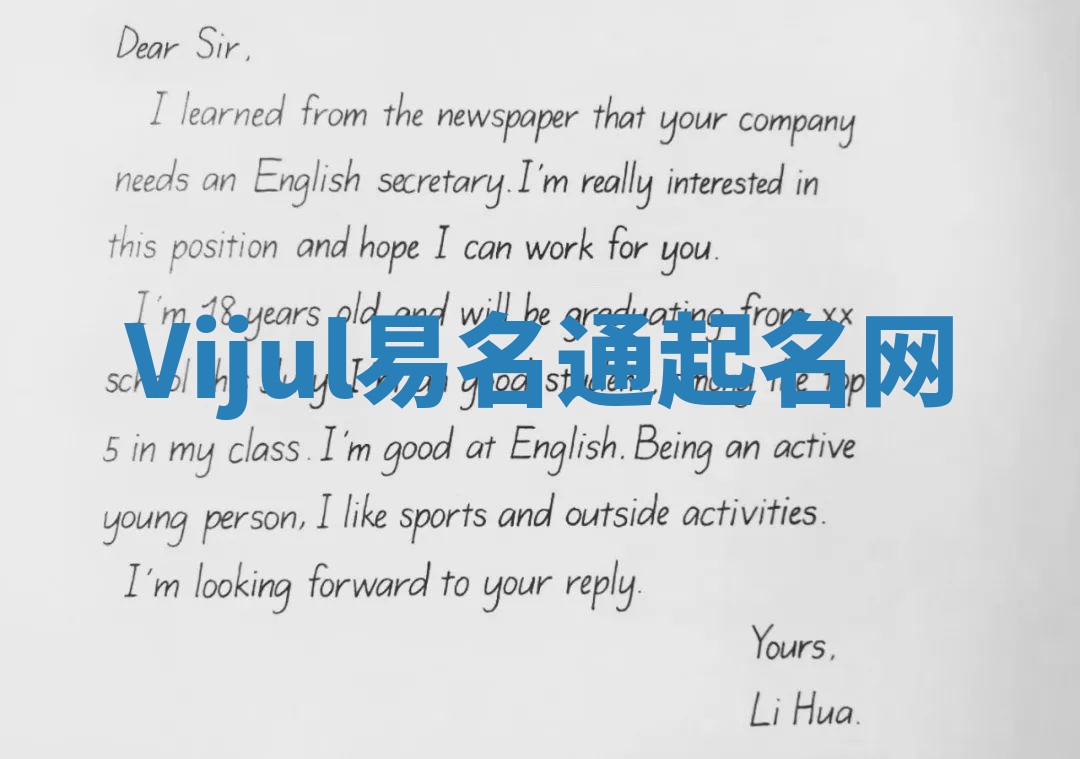 Dear Sir,
I learned from the newspaper that your company
needs an English secretary. I'm really interested in
this position and hope I can work for you.
I'm 18 years old and will be graduating from xx
Vijul易名通起名网
school this July. I'm a good student, among the top
5 in my class. I'm good at English. Being an active
young person, I like sports and outside activities.
I'm looking forward to your reply.
Yours,
Li Hua.